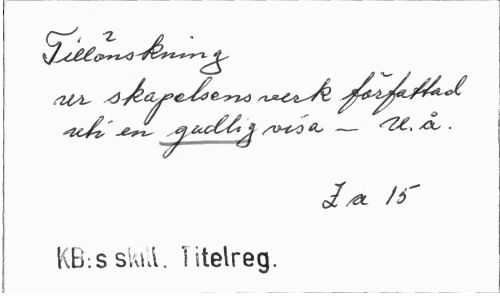 Tillönskning
ur skapelsensverk författad
uti en gudlig visa – U.å.
Z a 15
KB:s skill. Titelreg.